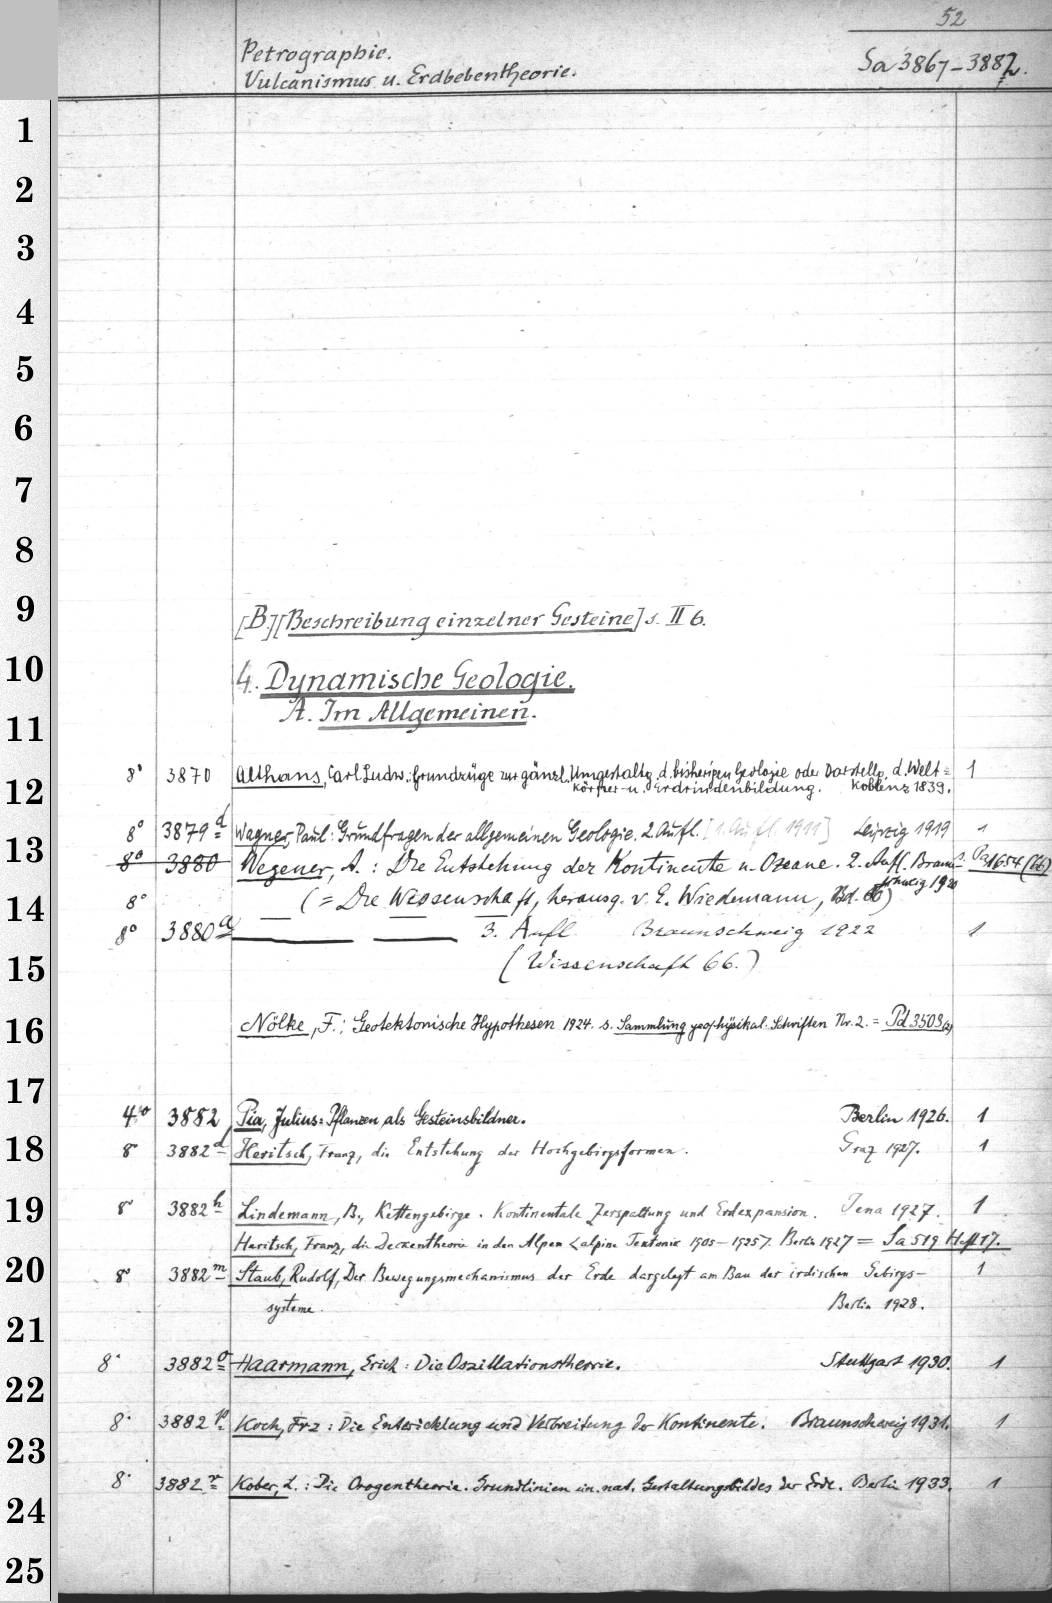 52
Petrographie.
Vulcanismus u. Erdbebentheorie.
Sa 3867-3882.
1
2
3
4
5
6
7
8
9
[B.] [Beschreibung einzelner Gesteine] s. II 6.
10
4. Dynamische Geologie.
11
A. Im Allgemeinen.
8° 3870 Althans, Carl Ludw.: Grundzüge zur gänzl. Umgestaltg. d. bisherigen Geologie oder Darstellg. d. Welt= 1
12
körper- u. Erdrindenbildung. Koblenz 1839.
8° 3879 d Wagner, Paul: Grundfragen der allgemeinen Geologie. 2. Aufl. [1. Aufl. 1911] Leipzig 1919 1
13
8° 3880 Wegener, A.: Die Entstehung der Kontinente u. Ozeane. 2. Aufl. Braun-
schweig 1920
14
8° (= Die Wissenschaft, herausg. v. E. Wiedemann, Bd. 66)
8° 3880 a — — 3. Aufl. Braunschweig 1922 1
15
(Wissenschaft 66.)
16
Nölke, F.: Geotektonische Hypothesen 1924. s. Sammlung geophysikal. Schriften Nr. 2. = Pd 3503
17
4° 3882 Pia, Julius: Pflanzen als Gesteinsbildner. Berlin 1926. 1
18
8° 3882 d Heritsch, Franz, die Entstehung der Hochgebirgsformen. Graz 1927. 1
19
8° 3882 h Lindemann, B., Kettengebirge. Kontinentale Zerspaltung und Erdexpansion. Jena 1927. 1
Heritsch, Franz, die Deckentheorie in den Alpen <alpine Tektonik 1905-1925>. Berlin 1927 = Sa 519 Heft 17.
20
8° 3882 m Staub, Rudolf, Der Bewegungsmechanismus der Erde dargelegt am Bau der irdischen Gebirgs- 1
systeme. Berlin 1928.
21
8° 3882 o Haarmann, Erich: Die Oszillationstheorie. Stuttgart 1930. 1
22
8° 3882 p Koch, Frz: Die Entwicklung und Verbreitung der Kontinente. Braunschweig 1931. 1
23
8° 3882 r Kober, L.: Die Orogentheorie. Grundlinien ein. nat. Gestaltungsbildes der Erde. Berlin 1933. 1
24
25